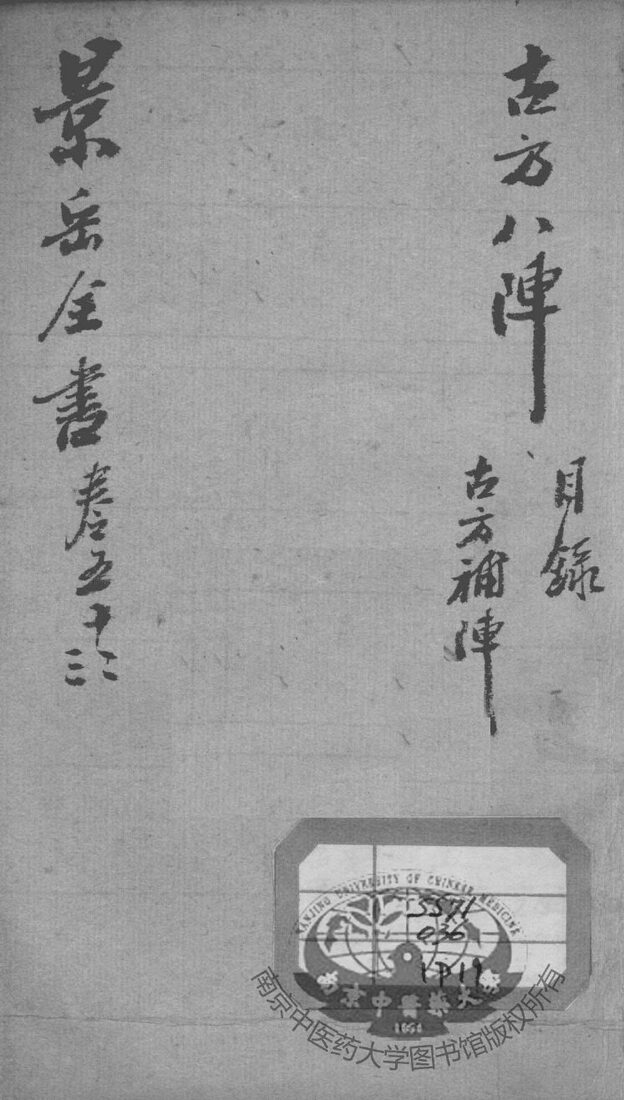 古方八陣
目錄
古方補陣
景岳全書 卷五十二三
NANJING UNIVERSITY OF CHINESE MEDICINE
5571
036
南京中醫藥大學
1954
南京中医药大学图书馆版权所有